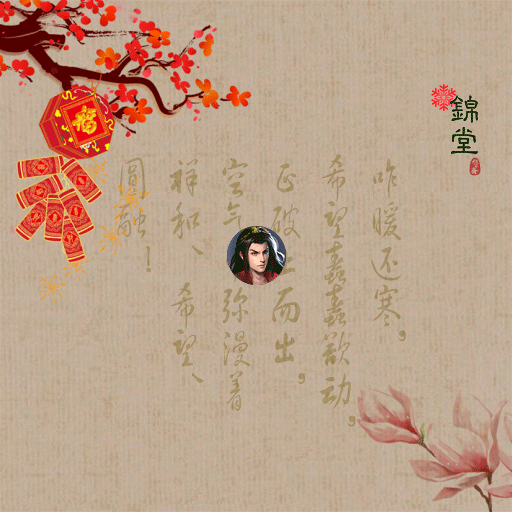 錦堂
咋暖还寒，
希望蠢蠢欲动，
正破而出，
空气弥漫着
祥和、希望、
圆融！
福